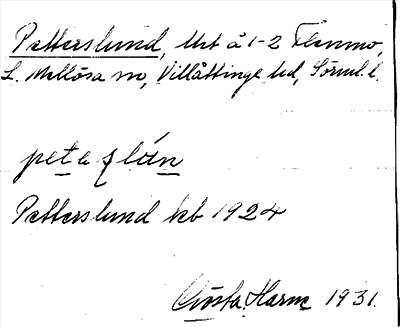 Petterslund, lht å 1-2 Flenmo,
L. Mellösa sn, Villåttinge hd, Sörml. l.
petaslún
Petterslund kb 1924
Gösta Harne 1931.